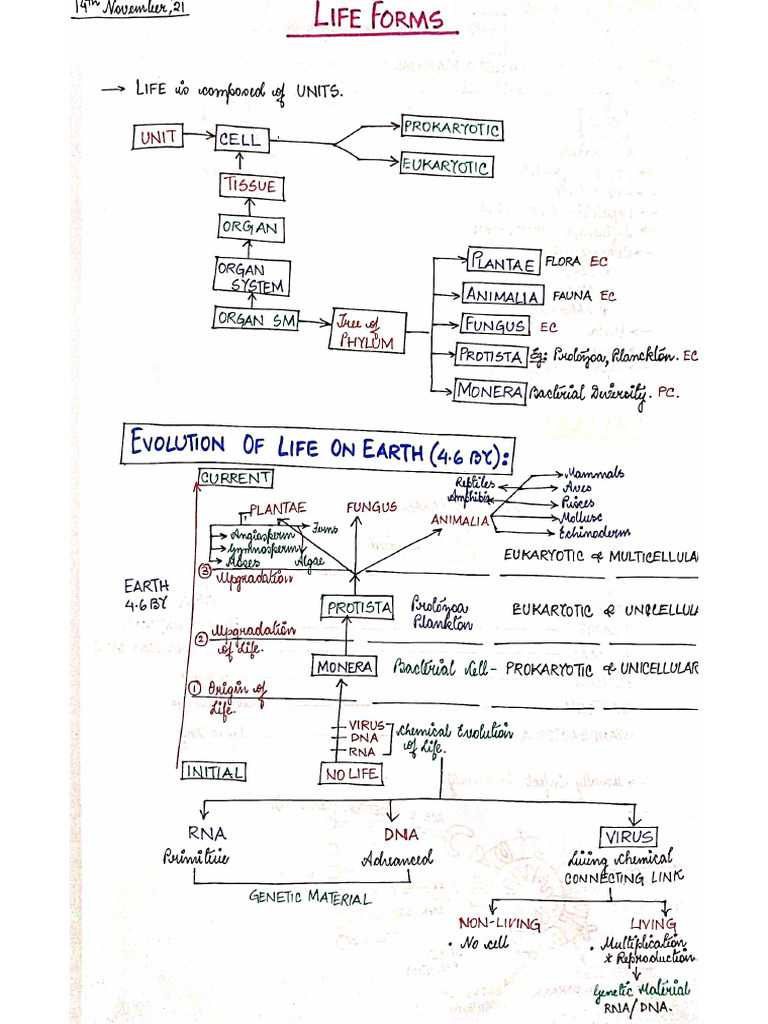 14th November, 21
LIFE FORMS
→ LIFE is composed of UNITS.
UNIT
CELL
PROKARYOTIC
EUKARYOTIC
TISSUE
ORGAN
ORGAN
SYSTEM
ORGAN SM
Tree of
PHYLUM
PLANTAE FLORA EC
ANIMALIA FAUNA EC
FUNGUS EC
PROTISTA Eg: Protozoa, Planckton. EC
MONERA Bacterial Diversity. PC.
EVOLUTION OF LIFE ON EARTH (4.6 BY):
CURRENT
PLANTAE
Ferns
Angiosperm
Gymnosperm
Algae
FUNGUS
ANIMALIA
Reptiles
Amphibia
Mammals
Aves
Pisces
Mollusc
Echinoderm
EUKARYOTIC & MULTICELLULA
③ Upgradation
EARTH
4.6 BY
PROTISTA
Protozoa
Plankton
EUKARYOTIC & UNICELLULA
② Upgradation
of Life.
MONERA
Bacterial cell - PROKARYOTIC & UNICELLULAR
① Origin of
Life.
VIRUS
DNA
RNA
Chemical Evolution
of Life.
INITIAL
NO LIFE
RNA
Primitive
DNA
Advanced
GENETIC MATERIAL
VIRUS
Living Chemical
CONNECTING LINK
NON-LIVING
• No cell
LIVING
• Multiplication
& Reproduction
Genetic Material
RNA/DNA.